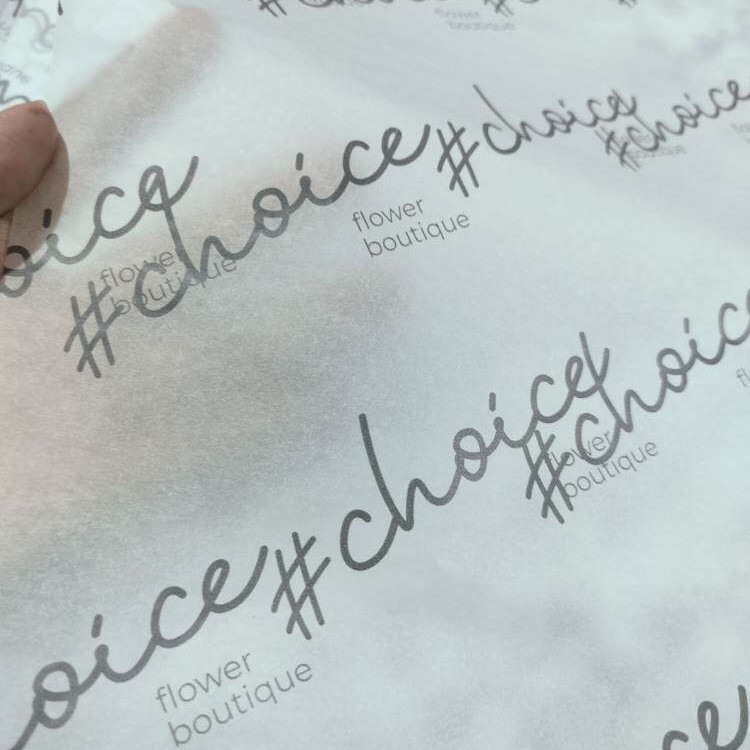 #choice
flower
boutique
#choice
#choice
boutique
oice
flower
boutique
#choice
flower
boutique
#choice
#choice
flower
boutique
oice
flower
boutique